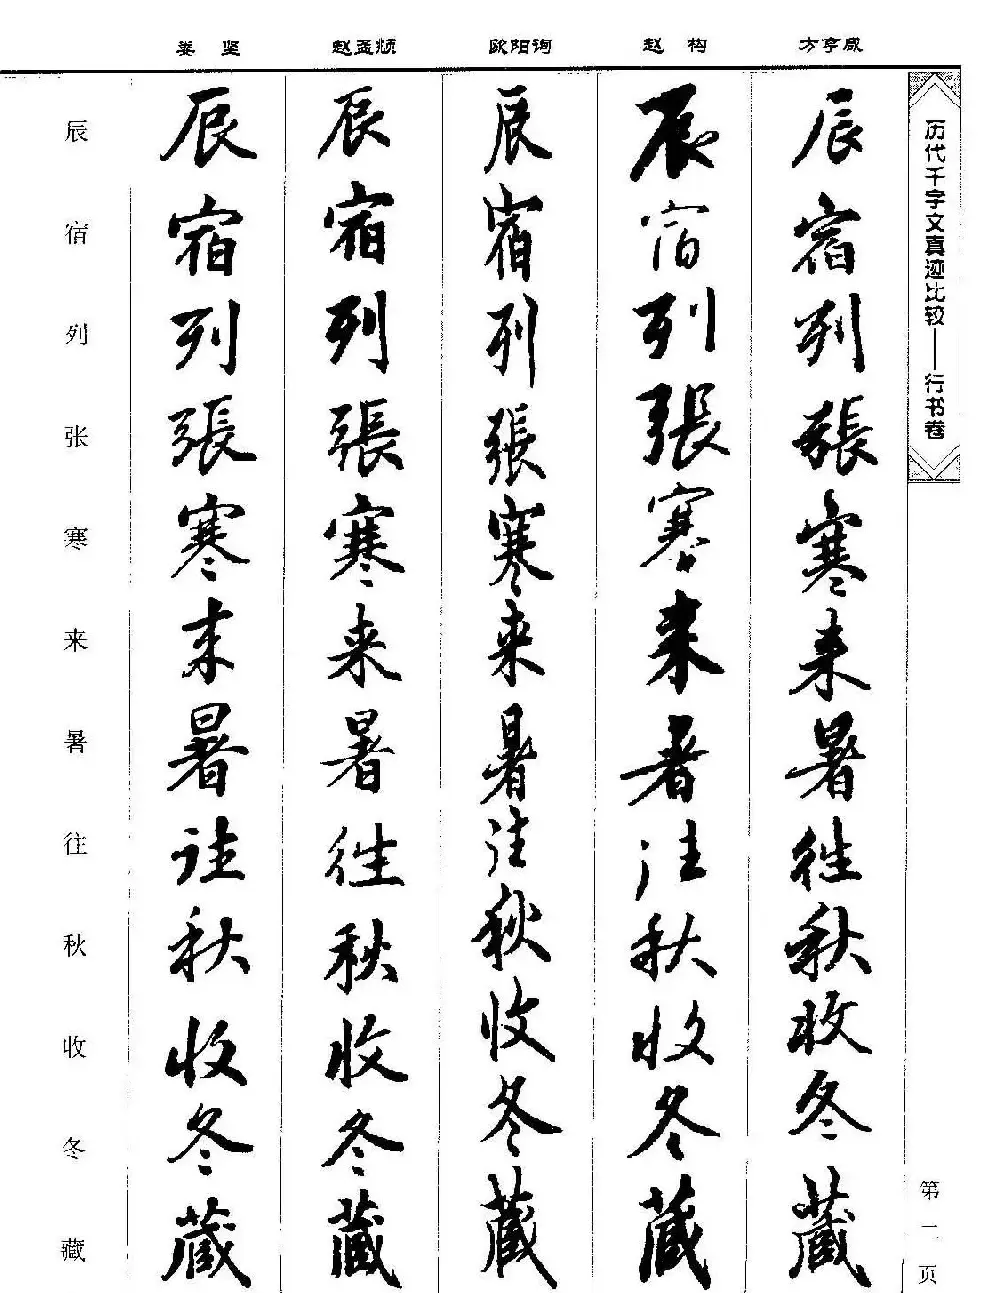 娄 坚 赵孟頫 欧阳询 赵 构 方亨咸
历代千字文真迹比较——行书卷
第一页
辰宿列張寒来暑往秋收冬藏
辰宿列張寒来暑往秋收冬藏
辰宿列張寒来暑往秋收冬藏
辰宿列張寒来暑往秋收冬藏
辰宿列張寒来暑往秋收冬藏
辰宿列张寒来暑往秋收冬藏